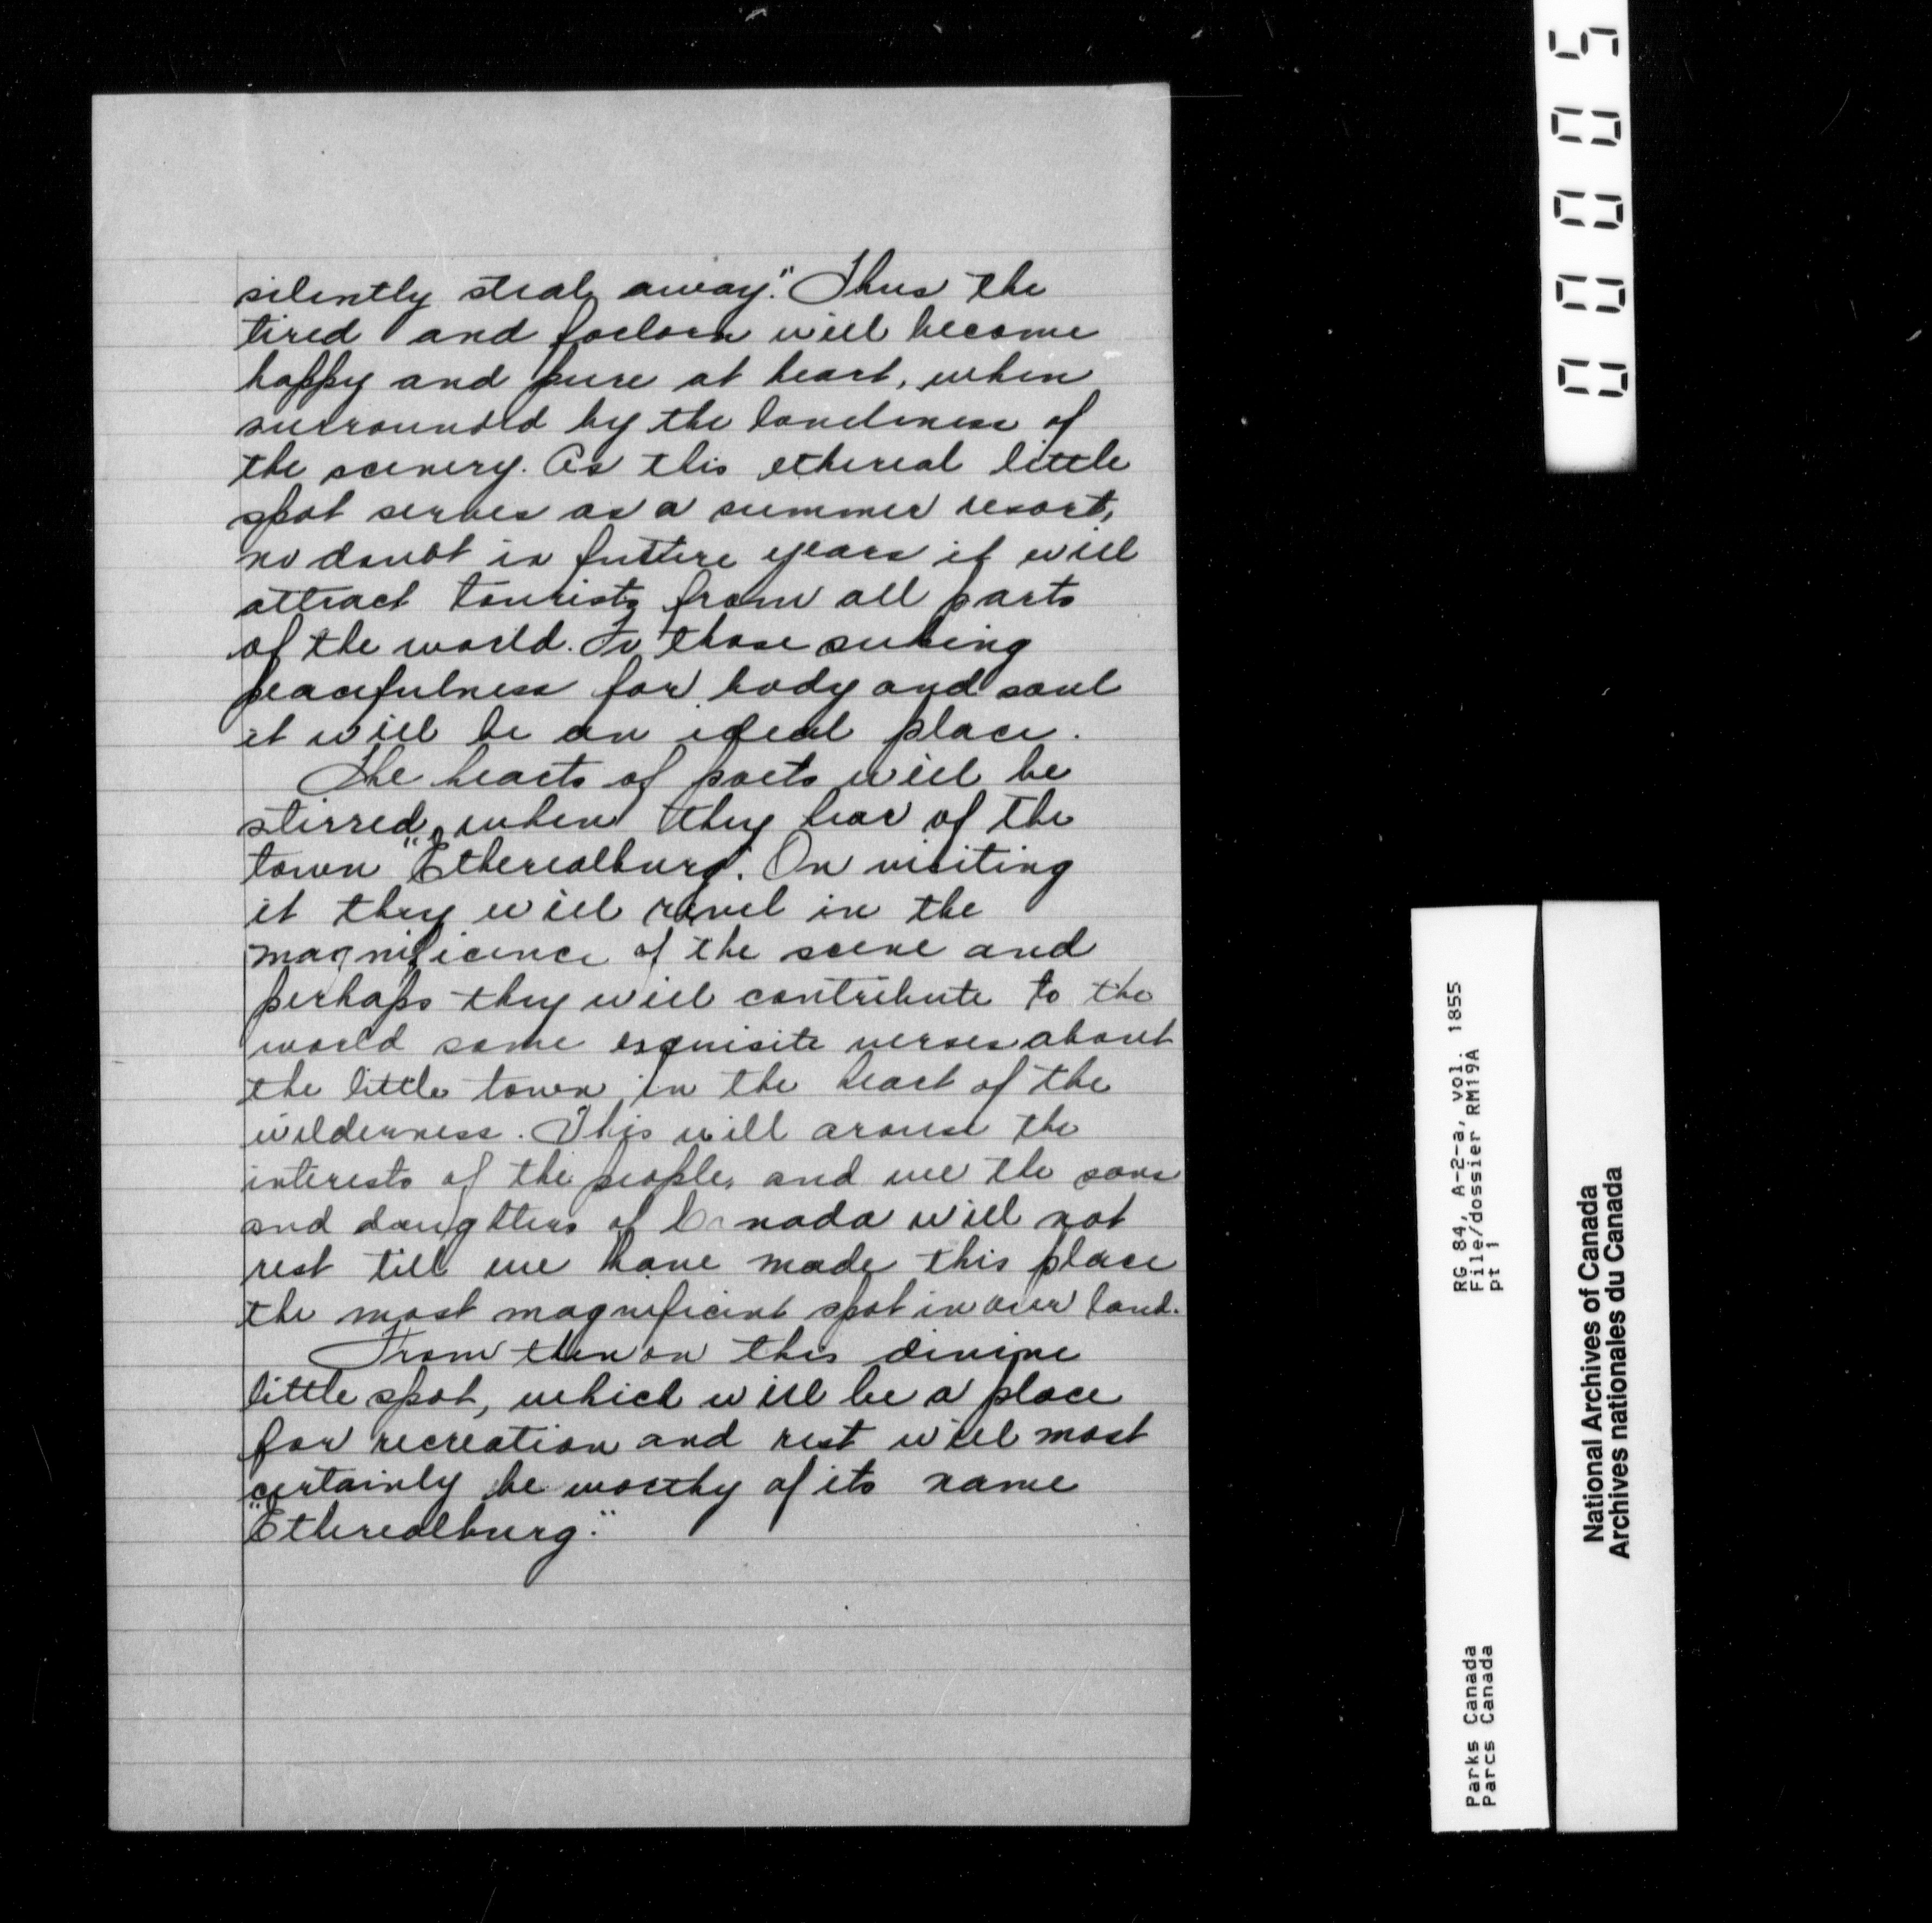 silently steal away." Thus the
tired and forlorn will become
happy and pure at heart, when
surrounded by the loneliness of
the scenery. As this ethereal little
spot serves as a summer resort,
no doubt in future years it will
attract tourists from all parts
of the world. To those seeking
peacefulness for body and soul
it will be an ideal place.
The hearts of poets will be
stirred, when they hear of the
town "Etherealburg". On visiting
it they will revel in the
magnificence of the scene and
perhaps they will contribute to the
world some exquisite verses about
the little town in the heart of the
wilderness. This will arouse the
interests of the people, and we the sons
and daughters of Canada will not
rest till we have made this place
the most magnificent spot in our land.
From then on this divine
little spot, which will be a place
for recreation and rest will most
certainly be worthy of its name
"Etherealburg."
00005
RG 84, A-2-a, vol. 1855
File/dossier RM19A
pt 1
Parks Canada
Parcs Canada
National Archives of Canada
Archives nationales du Canada